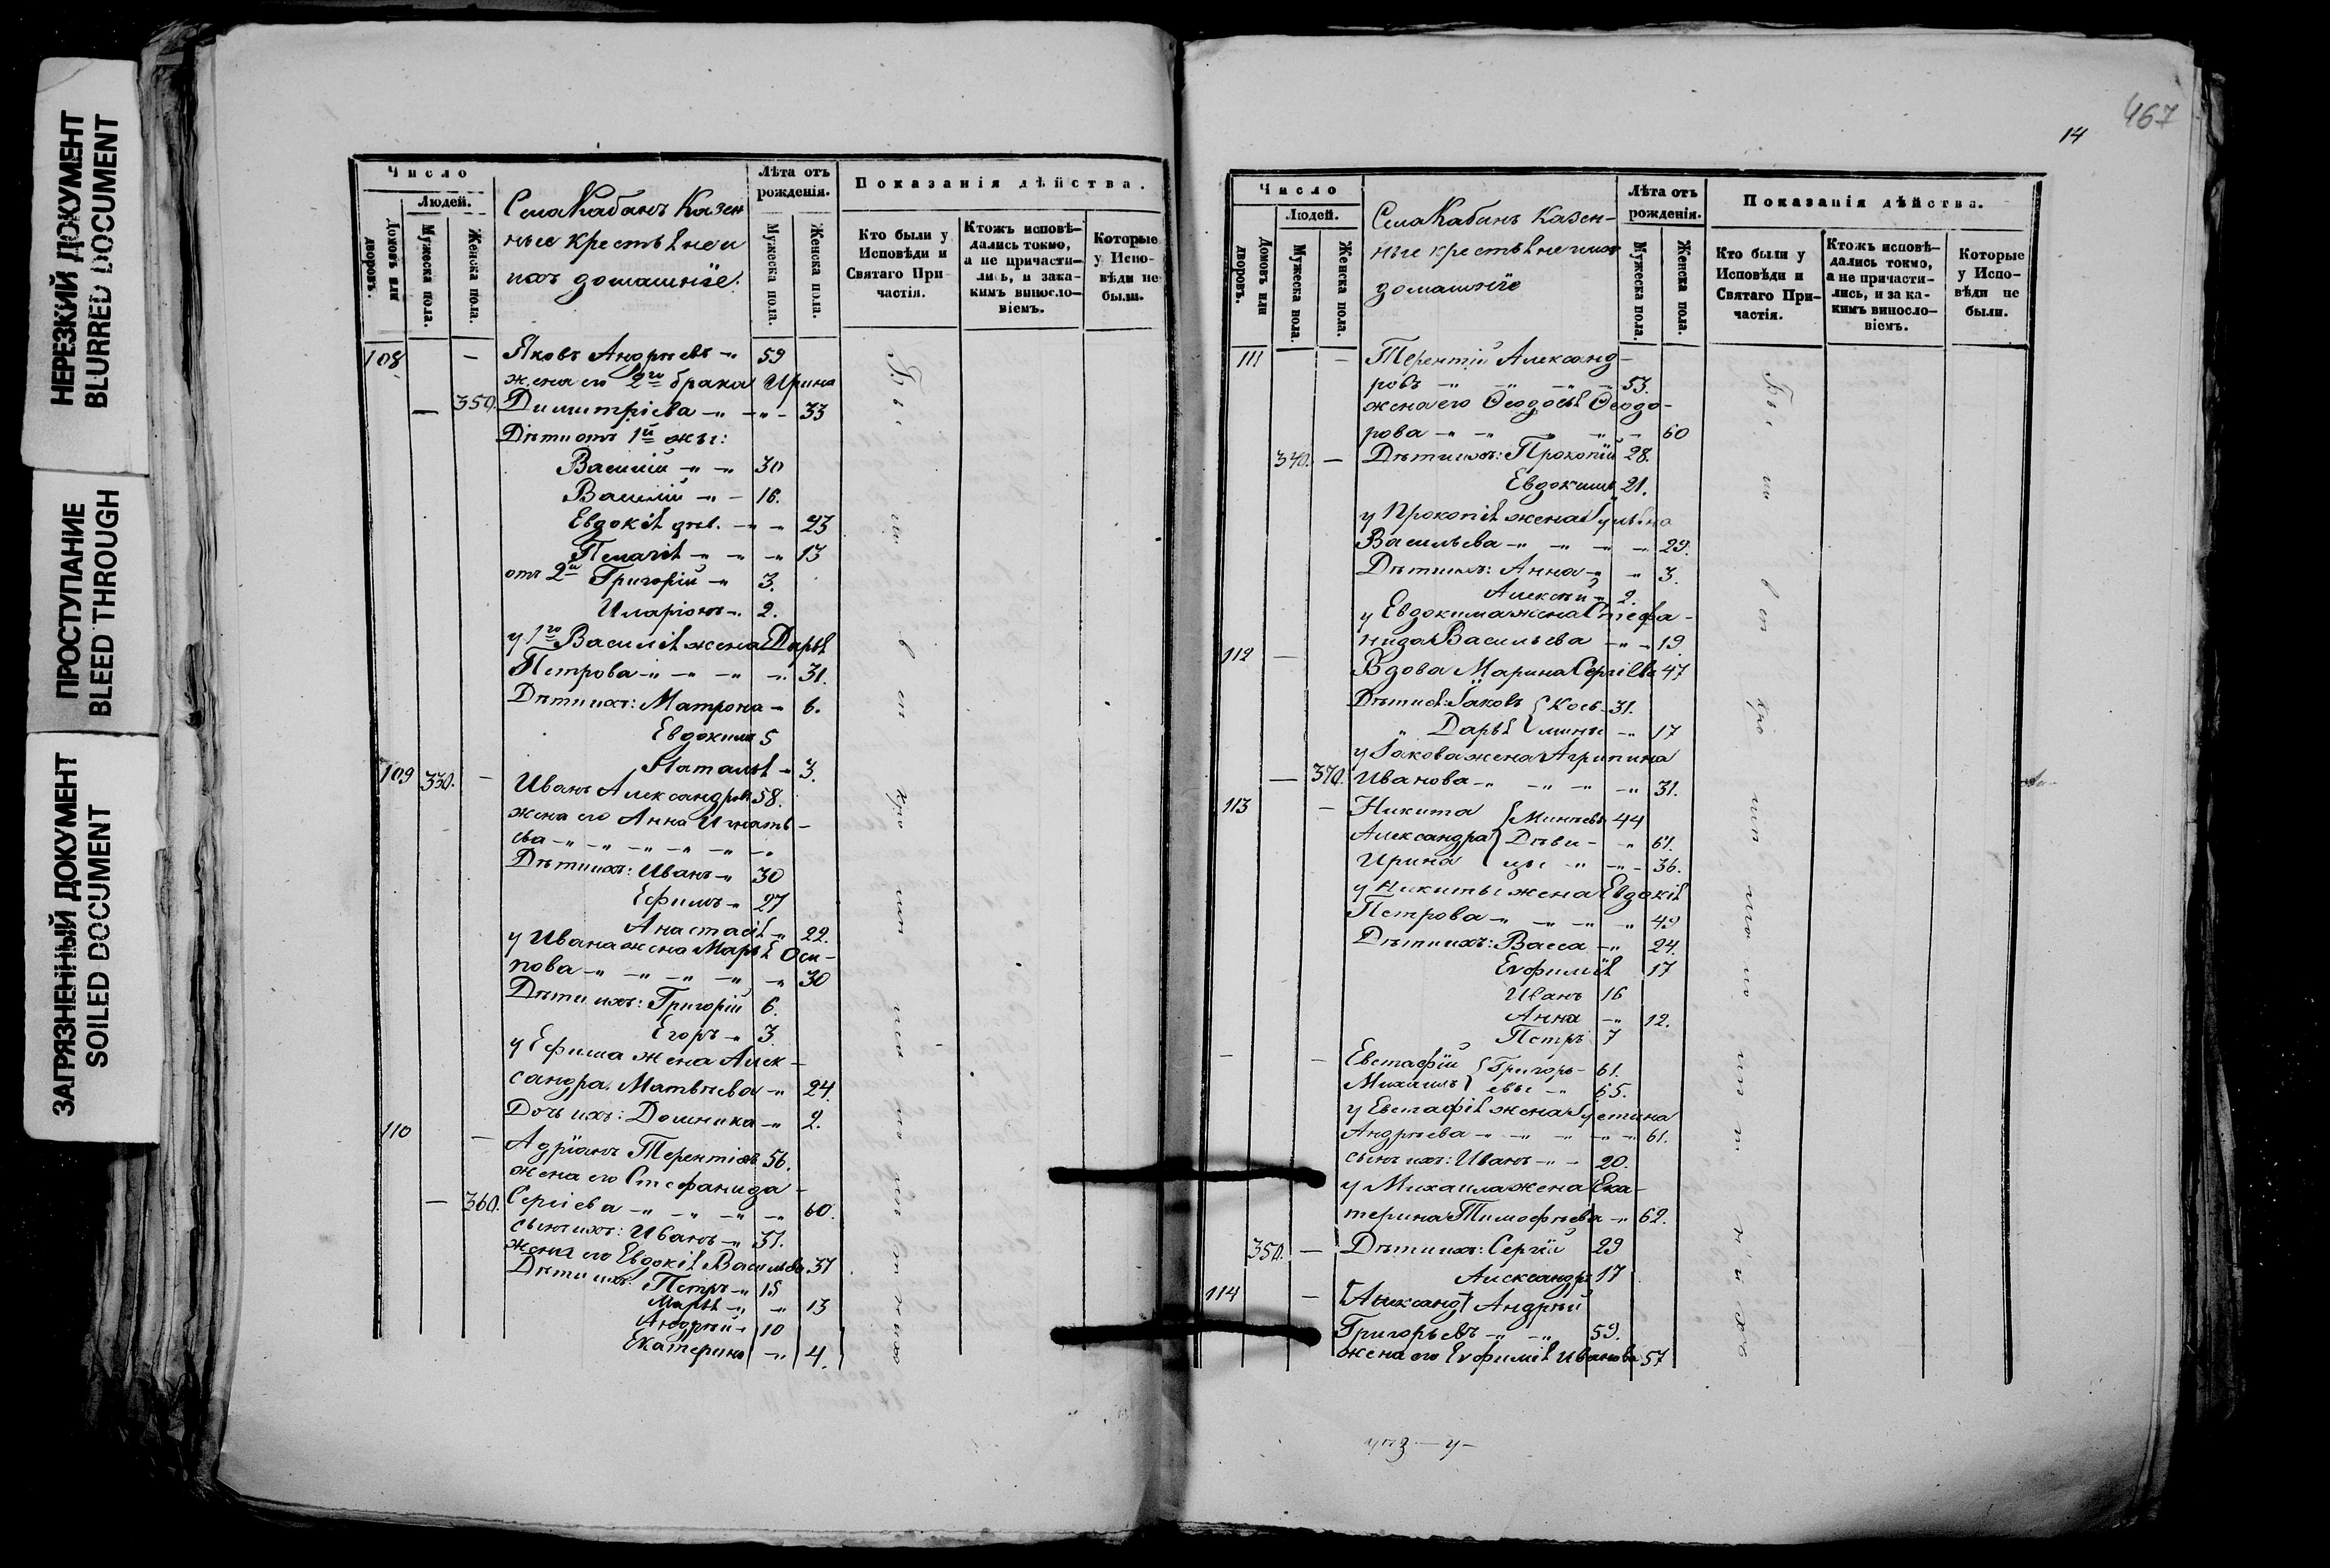 НЕРЕЗКИЙ ДОКУМЕНТ
BLURRED DOCUMENT
ПРОСТУПАНИЕ
BLEED THROUGH
ЗАГРЯЗНЕННЫЙ ДОКУМЕНТ
SOILED DOCUMENT
Число
Людей.
Домовъ или дворовъ.
Мужеска пола.
Женска пола.
Села Кабанъ Казен
ные крестьяне и
ихъ домашніе:
Лѣта отъ рожденія.
Мужеска пола.
Женска пола.
Показанія дѣйства.
Кто были у Исповѣди и Святаго При частія.
Ктожъ исповѣ– дались токмо, а не причасти– лись, и зака– кимъ винослов– віемъ.
Которые у Испо– вѣди не были.
108 — Яковъ Андреевъ 59
жена его 2го брака Ирина
— 350. Димитріева 33
Дѣти отъ 1й жъ:
Василій 30
Василій 16.
Евдокія дѣв. 23
Пелагія 13
отъ 2й Григорій 3.
Иларіонъ 2.
у 1го Василія жена Дарья
Петрова 31.
Дѣти ихъ: Матрона 6.
Евдокимъ 5
Наталья 3.
109 330. — Иванъ Александровъ 58.
жена его Анна Игнать–
ева
Дѣти ихъ: Иванъ 30
Ефимъ 27
Анастасія 22.
у Ивана жена Марья Оси–
пова 30
Дѣти ихъ: Григорій 6.
Егоръ 3.
у Ефима жена Алек–
сандра Матвѣева 24.
Дочь ихъ: Домника 2.
110 — Адріанъ Терентіевъ 56.
жена его Стефанида
— 360. Сергіева 60.
сынъ ихъ: Иванъ 37.
жена его Евдокія Васильева 37
Дѣти ихъ: Петръ 15
Марья 13
Андрей 10
Екатерина 4.
467
14
Число
Людей.
Домовъ или дворовъ.
Мужеска пола.
Женска пола.
Села Кабанъ Казен–
ные крестьяне и ихъ
домашніе
Лѣта отъ рожденія.
Мужеска пола.
Женска пола.
Показанія дѣйства.
Кто были у Исповѣди и Святаго При– частія.
Ктожъ исповѣ– дались токмо, а не причасти– лись, и за ка– кимъ винослo– віемъ.
Которые у Испо– вѣди не были.
111 — Терентій Александ–
ровъ 53.
жена его Ѳеодосья Ѳеодо–
рова 60
340. — Дѣти ихъ: Прокопій 28.
Евдокимъ 21.
у Прокопія жена Іульяна
Васильева 29.
Дѣти ихъ: Анна 3.
Алексѣй 2.
у Евдокима жена Стефа–
нида Васильева 19.
112 — Вдова Марина Сергіева 47
Дѣти ея: Іаковъ Козь– 31.
Дарья мины 17
у Іакова жена Агрипина
— 370. Иванова 31.
113 — Никита Минѣевъ 44
Александра Дѣви– 61.
Ирина цы 36.
у Никиты жена Евдокія
Петрова 49
Дѣти ихъ: Васса 24.
Евфимія 17
Иванъ 16
Анна 12.
Петръ 7
— — Евстафій Григорь– 61.
Михаилъ евы 65.
у Евстафія жена Іустина
Андреева 61.
сынъ ихъ: Иванъ 20.
у Михаила жена Ека–
терина Тимофѣева 62.
350. — Дѣти ихъ: Сергій 29
Александръ 17
114 — [Александ] Андрей
Григорьевъ 59.
жена его Евфимія Иванова 57